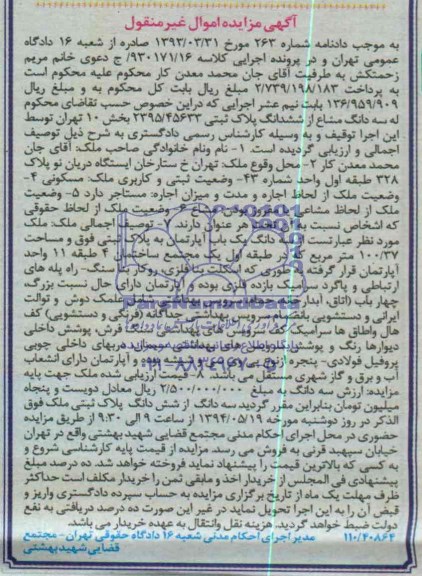 آگهی مزایده اموال غیر منقول
به موجب دادنامه شماره ۲۶۳ مورخ ۱۳۹۲/۰۳/۳۱ صادره از شعبه ۱۶ دادگاه
عمومی تهران و در پرونده اجرایی کلاسه ۹۳۰۱۷۱/۱۶/ ج دعوی خانم مریم
زحمتکش به طرفیت آقای جان محمد معدن کار محکوم علیه محکوم است
به پرداخت ۲/۷۳۹/۱۹۸/۱۸۳ ریال بابت کل محکوم به و مبلغ ریال
۱۳۶/۹۵۹/۹۰۹ بابت نیم عشر اجرایی که دراین خصوص حسب تقاضای محکوم
له سه دانگ مشاع از ششدانگ پلاک ثبتی ۲۳۹۵/۴۵۶۳۳ بخش ۱۰ تهران توسط
این اجرا توقیف و به وسیله کارشناس رسمی دادگستری به شرح ذیل توصیف
اجمالی و ارزیابی گردیده است. ۱- نام ونام خانوادگی صاحب ملک: آقای جان
محمد معدن کار ۲- محل وقوع ملک: تهران خ ستارخان ایستگاه دریان نو پلاک
۳۲۸ طبقه اول واحد شماره ۳ ۴- وضعیت ثبتی و کاربری ملک: مسکونی ۴-
وضعیت ملک از لحاظ اجاره و مدت و میزان اجاره: مستأجر دارد ۵- وضعیت
ملک از لحاظ مشاعی یا مفروز بودن: مشاع ۶- وضعیت ملک از لحاظ حقوقی
که اشخاص نسبت به آن تعهد هر عنوان دارند: ۷- توصیف اجمالی ملک: ملک
مورد نظر عبارتست از سه دانگ یک باب آپارتمان به پلاک ثبتی فوق و مساحت
۱۰۰/۳۷ متر مربع که در طبقه اول یک مجتمع ساختمانی ۴ طبقه ۱۱ واحد
آپارتمان قرار گرفته بطوری که اسکلت بنا فلزی، روکار بنا سنگ- راه پله های
ارتباطی و پاگرد سرامیک بازده فلزی بوده و آپارتمان دارای حال نسبت بزرگ،
چهار باب (اتاق، آبدارخانه، حمام، سرویس بهداشتی شامل علمک دوش و توالت
ایرانی و دستشویی بانضمام سرویس بهداشتی جداگانه (فرنگی و دستشویی) کف
هال واطاق ها سرامیک کف سرویس های بهداشتی سنگ فرش، پوشش داخلی
دیوارها رنگ و پوشش سرویس های بهداشتی سرامیک، دربهای داخلی چوبی
پروفیل فولادی- پنجره ازنوع پی وی سی دو شیشه بوده و آپارتمان دارای انشعاب
آب و برق و گاز شهری مستقل می باشد. ۸- قیمت ارزیابی شده ملک جهت پایه
مزایده: ارزش سه دانگ به مبلغ ۲/۵۰۰/۰۰۰/۰۰۰ ریال معادل دویست و پنجاه
میلیون تومان بنابراین مقرر گردید سه دانگ از شش دانگ پلاک ثبتی ملک فوق
الذکر در روز دوشنبه مورخه ۱۳۹۴/۰۵/۱۹ از ساعت ۹ الی ۹:۳۰ از طریق مزایده
حضوری در محل اجرای احکام مدنی مجتمع قضایی شهید بهشتی واقع در تهران
خیابان سپهبد قرنی به فروش می رسد. مزایده از قیمت پایه کارشناسی شروع و
به کسی که بالاترین قیمت را پیشنهاد نماید فروخته خواهد شد. ده درصد مبلغ
پیشنهادی فی المجلس از خریدار اخذ و مابقی ثمن را خریدار مکلف است حداکثر
ظرف مهلت یک ماه از تاریخ برگزاری مزایده به حساب سپرده دادگستری واریز و
قبض آن را به این اجرا تحویل نماید در غیر این صورت ده درصد دریافتی به نفع
دولت ضبط خواهد گردید. هزینه نقل وانتقال به عهده خریدار می باشد.
۱۱۰/۴۰۸۶۴ مدیر اجرای احکام مدنی شعبه ۱۶ دادگاه حقوقی تهران- مجتمع
قضایی شهید بهشتی